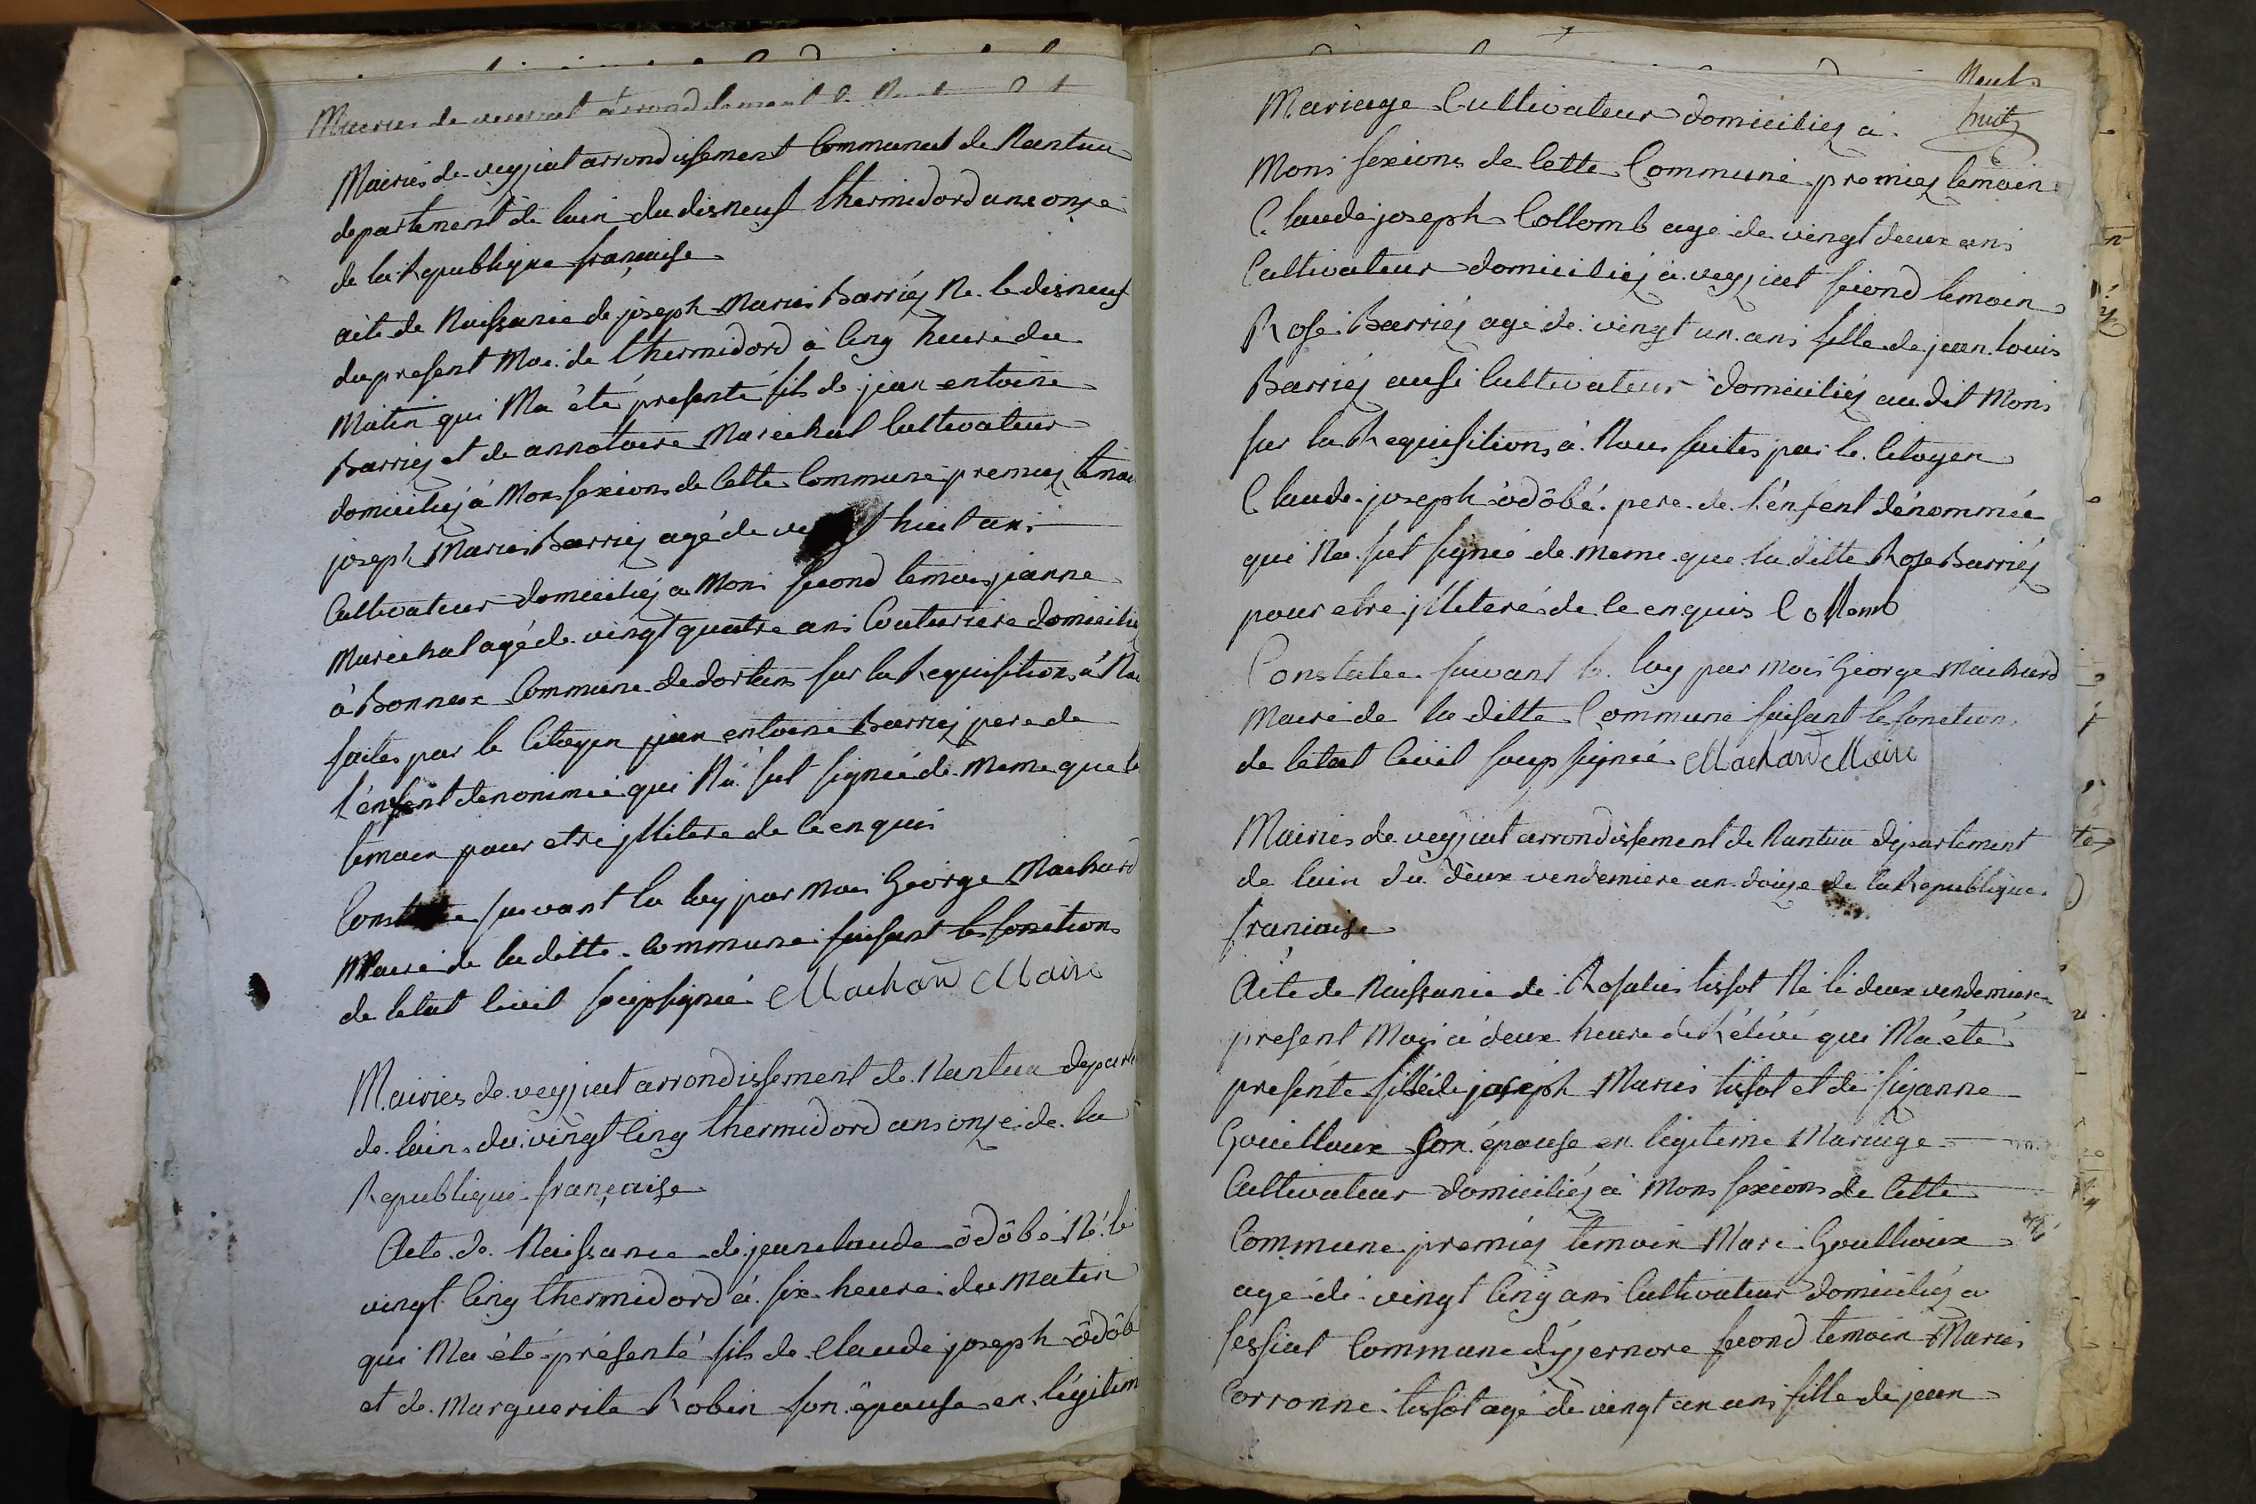 Mairies de veyziat arrondissement
Mairies de veyziat arrondissement Communat de Nantua
departement de lain du disneuf thermidord ans onze
de la Republique francaise
acte de Naissance de joseph Maries Barriéz Ne le disneuf
du present Moi de thermidord à cinq heure du
Matin qui Ma été presenté fils de jean entoine
Barriez et de annotoire Marechal Cultivateur
domiciliéz à Mons sexions de Cette Commune premiez temoi
joseph Maries Barriez agé de vingt huit ans
Cultivateur domiciliéz a Mons second temoin jeanne
Marechal agé de vingt quatre ans Couturiere domicilie
à Bonnaz Commune de dortans sur la Requisitions à Nou
faites par le Citoyen jean entoine Barriez pere de
l'enfent denommé qui Na sut signée de Meme que le
temoin pour etre jlliteré de ce enquis
Constatée suivant la loy par Moi George Machard
Maire de la ditte Commune faisant les fonctions
de letat Civil soupsigné Machard Maire
Mairies de veyziat arrondissement de Nantua depart
de lain du vingt cinq thermidord ans onze de la
Republique française
Acte de Naissance de jean claude ôdôbé Né le
vingt cinq thermidord à six heure du Matin
qui Ma été présenté fils de Claude joseph ôdôb
et de Marguerite Robin son épouse en légitim
Neuf
huit
Mariage Cultivateur domiciliéz à
Mons sexions de Cette Commune premiez temoin
Claude joseph Collomb agé de vingt deux ans
Cultivateur domiciliéz à veyziat second temoin
Rose Barriéz agé de vingt un ans fille de jean louis
Barriéz ausi Cultivateur domiciliéz au dit Mons
sur la Requisitions à Nous faites par le Citoyen
Claude joseph ôdôbé pere de l'enfent dénommée
qui Na sut signée de meme que la ditte Rose Barriéz
pour etre jlliteré de ce enquis Collomb
Constatée suivant la loy par moi George Machard
Maire de la ditte Commune faisant les fonction
de letat Civil soup signée Machard Maire
Mairies de veyziat arrondissement de Nantua département
de lain du deux vendemiere an douze de la Republique
francaise
Acte de Naissance de Rosalies tissot Né le deux vendemiere
present Moi à deux heure de Relévé qui Ma été
presénte fille de joseph Maries tissot et de suzanne
Gouilloux son épouse en légitime Mariage
Cultivateur domiciliéz à Mons sexions de Cette
Commune premiéz temoin Marc Goullioux
agé de vingt cinq ans Cultivateur domiciliéz a
sessiat Commune dyzernore second temoin Maries
Corronne tissot agé de vingt un ans fille de jean